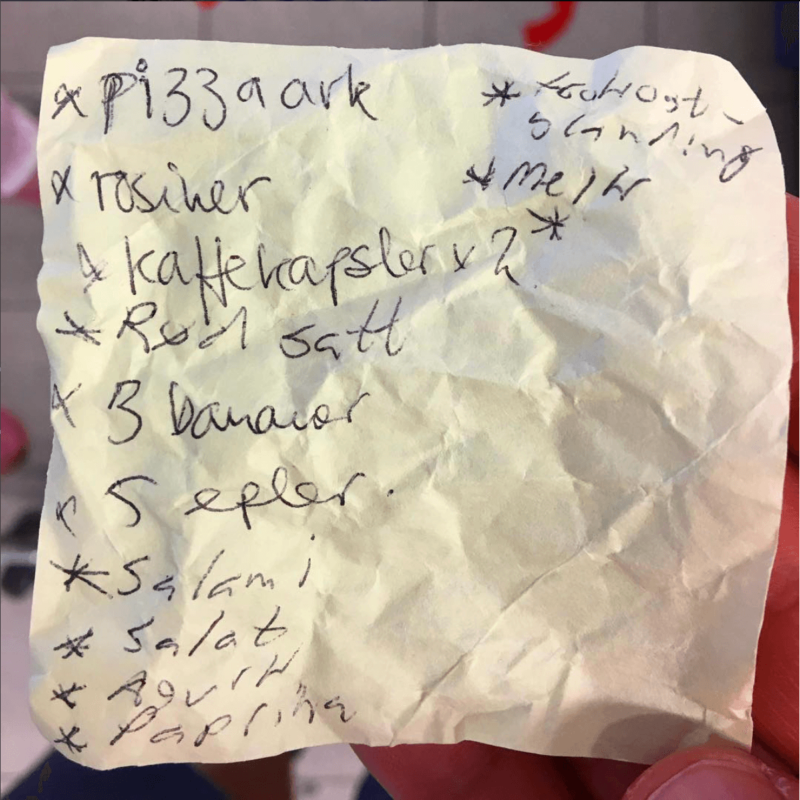 * pizzaark
* rosiner
* kaffekapsler x 2
* Rød saft
* 3 bananer
* 5 epler.
* Salami
* Salat
* Agurk
* Paprika
* Frokost-
blanding
* Melk
*